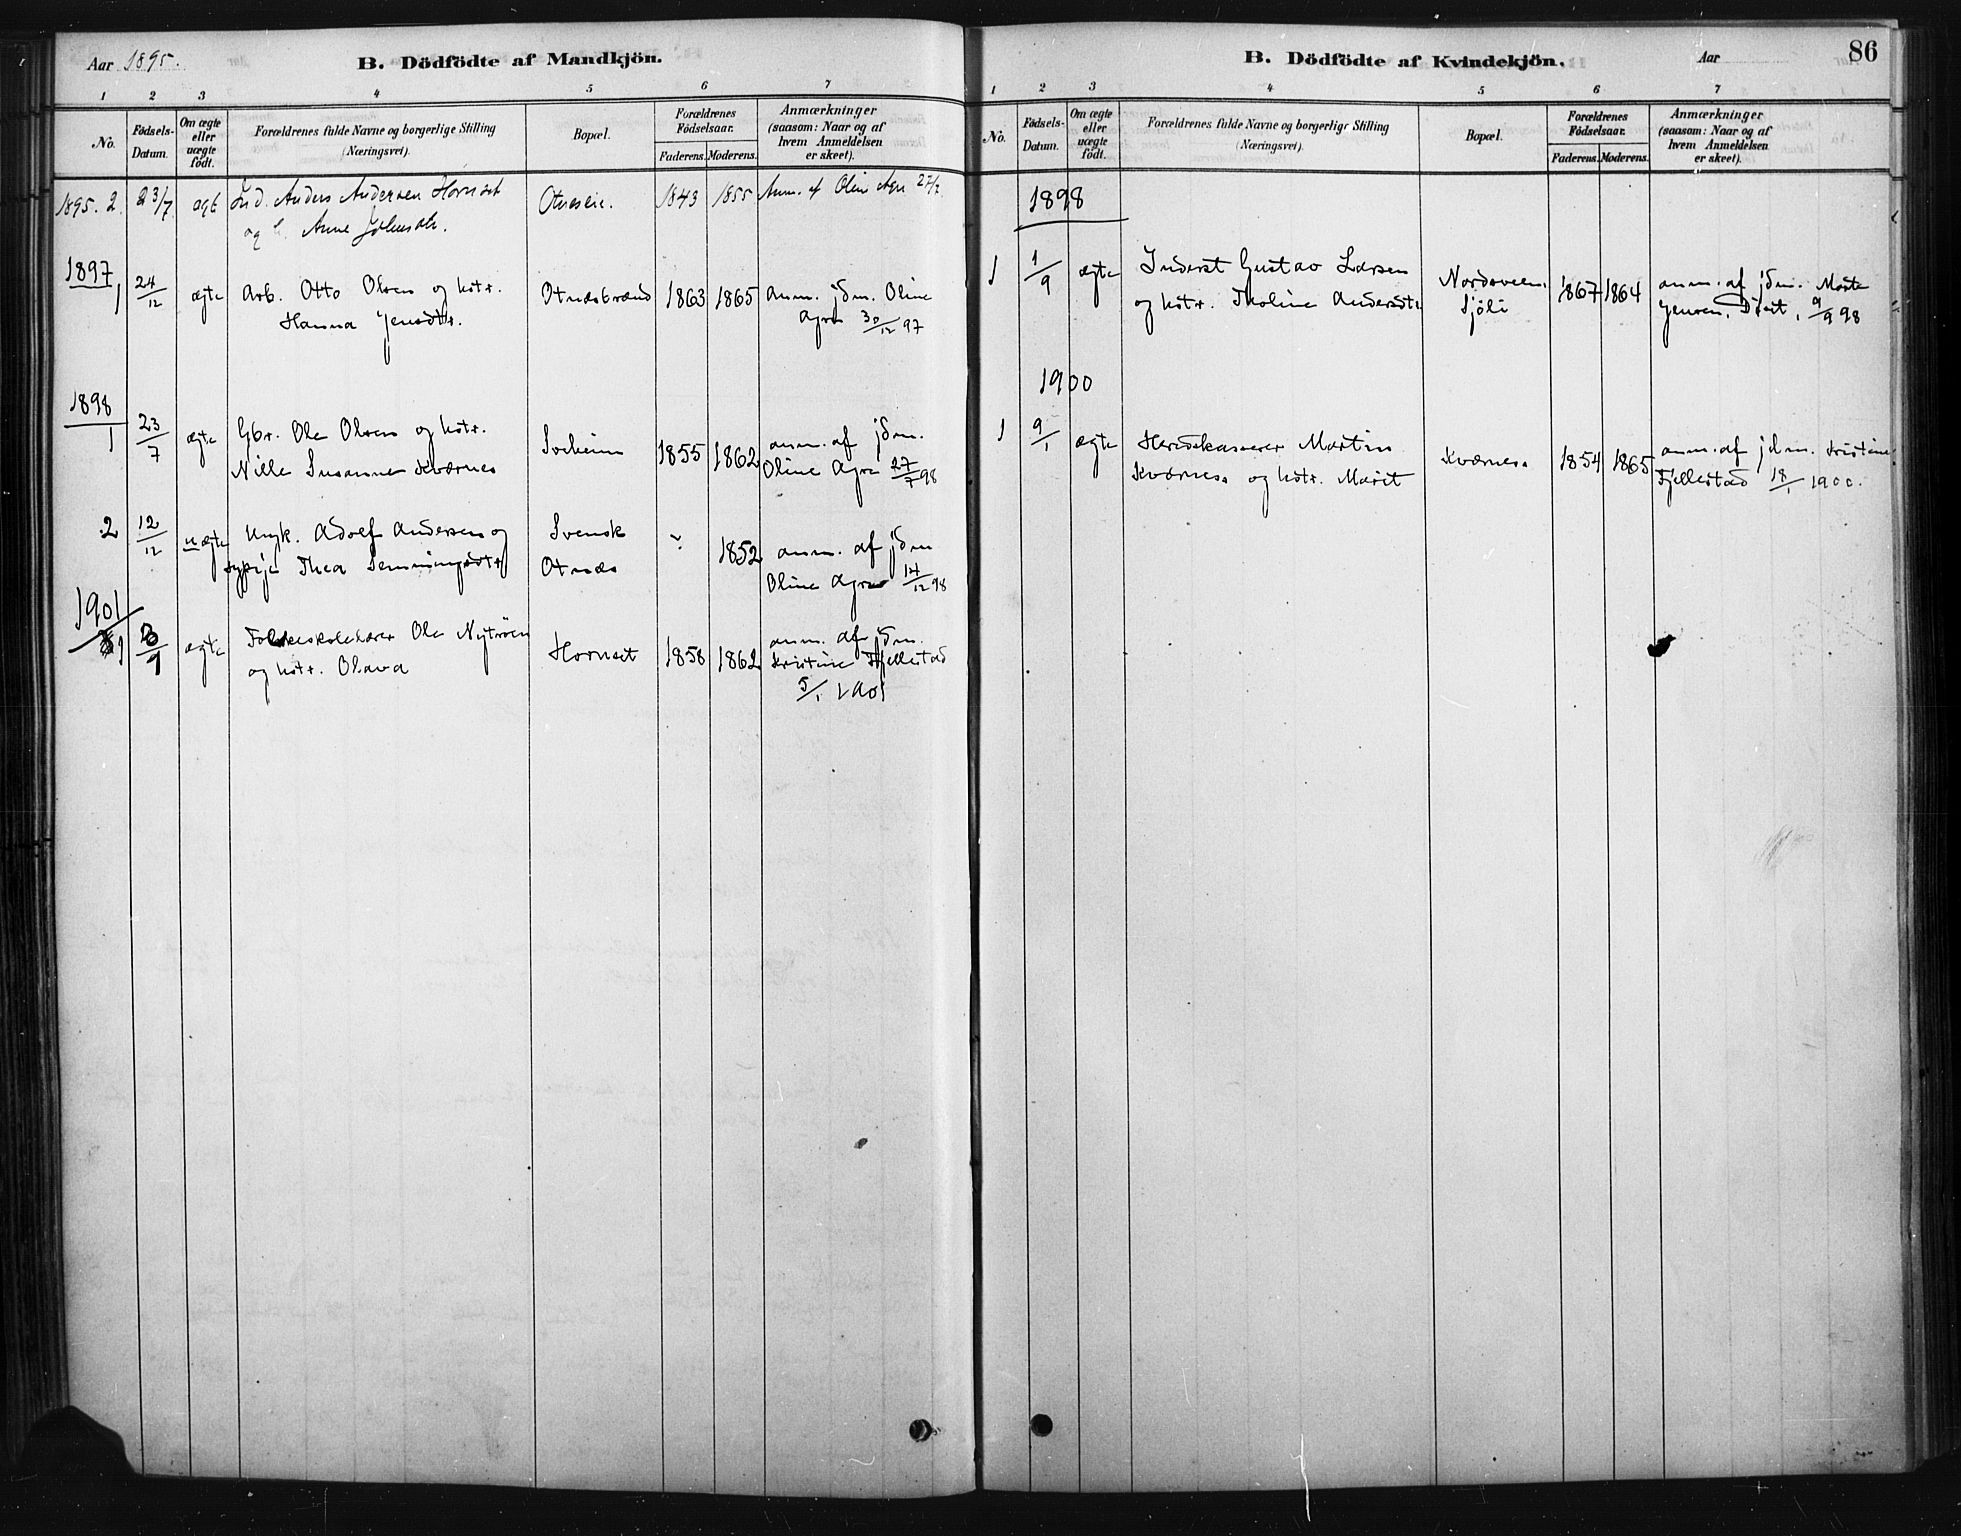 Aar 1895.
B. Dödfödte af Mandkjön.
1 2 3 4 5 6 7
No.
Födsels-
Datum.
Om ægte
eller
uægte
födt.
Forældrenes fulde Navne og borgerlige Stilling
(Næringsvei).
Bopæl.
Forældrenes
Födselsaar.
Faderens. Moderens.
Anmærkninger
(saasom: Naar og af
hvem Anmeldelsen
er skeet).
1895. 2. 23/7 ægt Ind. Anders Andersen Hornset Otneseie. 1843 1855 Anm. af Oline Agre
og Anne
1897
1 24/12 ægte Arb. Otto Olsen og hstr. Otnæsbrænd 1863 1865 Anm. jdm. Oline
Hanna Jensdtr. Agre 30/12 97
1898
1 23/7 ægte Gbr. Ole Olsen og hstr. Solheim 1855 1862 anm. af jdm.
Nille Susanne Kværnes Oline Agre 27/7 98
2 12/12 uægte Ungk. Adolf Andersen og Svensk 1852 anm. af jdm
sypige Thea Semmingsdtr Otnæs Oline Agre 14/12 98
1901
1 3/1 ægte Folkeskolelærer Ole Nytröen Hornset 1858 1862 anm. af jdm.
og hstr. Olava Kristine Fjellestad
5/1 1901
B. Dödfödte af Kvindekjön.
Aar
86
1 2 3 4 5 6 7
No.
Födsels-
Datum.
Om ægte
eller
uægte
födt.
Forældrenes fulde Navne og borgerlige Stilling
(Næringsvei).
Bopæl.
Forældrenes
Födselsaar.
Faderens. Moderens.
Anmærkninger
(saasom: Naar og af
hvem Anmeldelsen
er skeet).
1898
1 1/9 ægte Inderst Gustav Larsen Nordsveen. 1867 1864 anm. af jdm. Marte
og hstr. Tholine Andersdtr. Sjöli Jensen, 9/9 98
1900
1 9/1 ægte Heredskasserer Martin Kværnes. 1854 1865 anm. af jdm. Kristine
Kværnes. og hstr. Marit Fjellestad 18/1 1900.